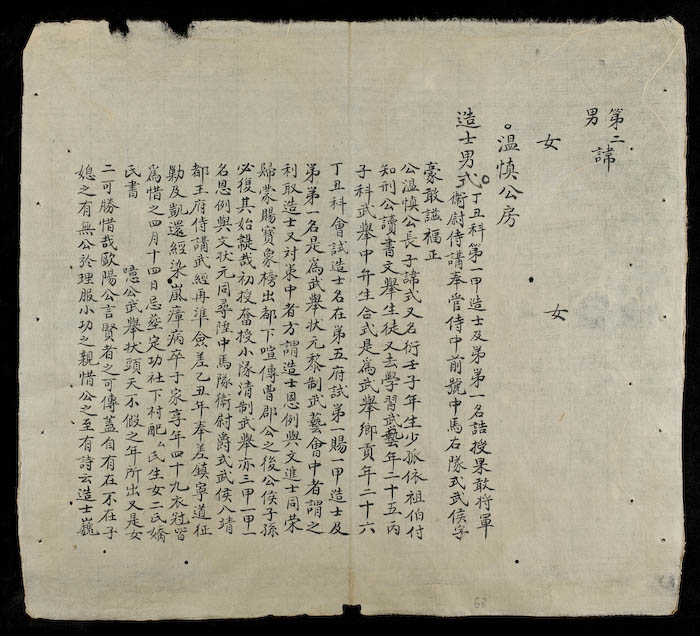 第二諱
男
女 女
溫慎公房
造士男弍 丁丑科第一甲造士及第第一名誥授果敢將軍
衞尉侍講奉管侍中前號中馬右隊弍武侯字
豪敢謚福正
公溫慎公長子諱弍又名衍壬子年生少孤依祖伯付
知刑公讀書文舉生徒又去學習武藝年二十五丙
子科武舉中弁生合式是爲武舉鄉貢年二十六
丁丑科會試造士名在第五府試第一賜一甲造士及
第第一名是爲武舉狀元黎制武藝會中者謂之
利取造士又對策中者方謂造士恩例與文進士同榮
歸蒙賜寶象榜出都下喧傳曹郡公之後公侯子孫
必復其始韙哉初授奮授小隊清制武舉亦三甲一甲一
名恩例與文状元同尋陞中馬隊衞尉爵弍武侯八靖
都王府侍講武經再準僉差乙丑年奉差鎮寧道征
勦及凱還經染嵐瘴病卒于家享年四十九衣冠皆
爲惜之四月十四日忌塟定功社下村配厶氏生女二氏嬌
氏書 噫公武舉状頭天不假之年所出又是女
二可勝惜哉歐陽公言賢者之可傳蓋自有在不在子
媳之有無公於理服小功之親惜公之至有詩云造士巍
68